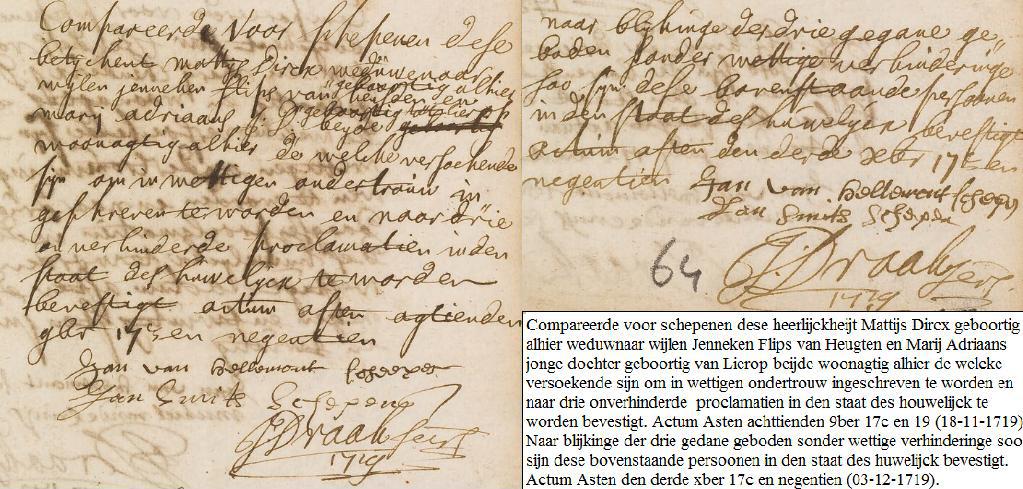 Compareerde Voor schepenen dese
betyckent mattijs Dircx weduwenaar
geboortig alhier
wijlen jenneken flips van heughden en
marij adriaans j: d: geboortig van lierop
beyde
woonagtig alhier de welcke versoekende
sijn om in wettigen ondertrouw in
geschreven te worden en naar drie
onverhinderde proclamatien inden
staat des huwelijck te worden
bevestigt actum asten agtienden
9br 17c en negentien
Jan van Hellemont schepen
Jan Smits Schepen
1719
naar blijkinge der drie gegane ge
boden sonder wettige verhinderinge
soo sijn dese bovenstaande persoonen
in den staat des huwelijck bevestigt
actum asten den derde xber 17c en
negentien
Jan van Hellemont schepen
Jan Smits Schepen
64
1719
Compareerde voor schepenen dese heerlijckheijt Mattijs Dircx geboortig
alhier weduwnaar wijlen Jenneken Flips van Heugten en Marij Adriaans
jonge dochter geboortig van Lierop beijde woonagtig alhier de welcke
versoekende sijn om in wettigen ondertrouw ingeschreven te worden en
naar drie onverhinderde proclamatien in den staat des houwelijck te
worden bevestigt. Actum Asten achttienden 9ber 17c en 19 (18-11-1719)
Naar blijkinge der drie gedane geboden sonder wettige verhinderinge soo
sijn dese bovenstaande persoonen in den staat des huwelijck bevestigt.
Actum Asten den derde xber 17c en negentien (03-12-1719).